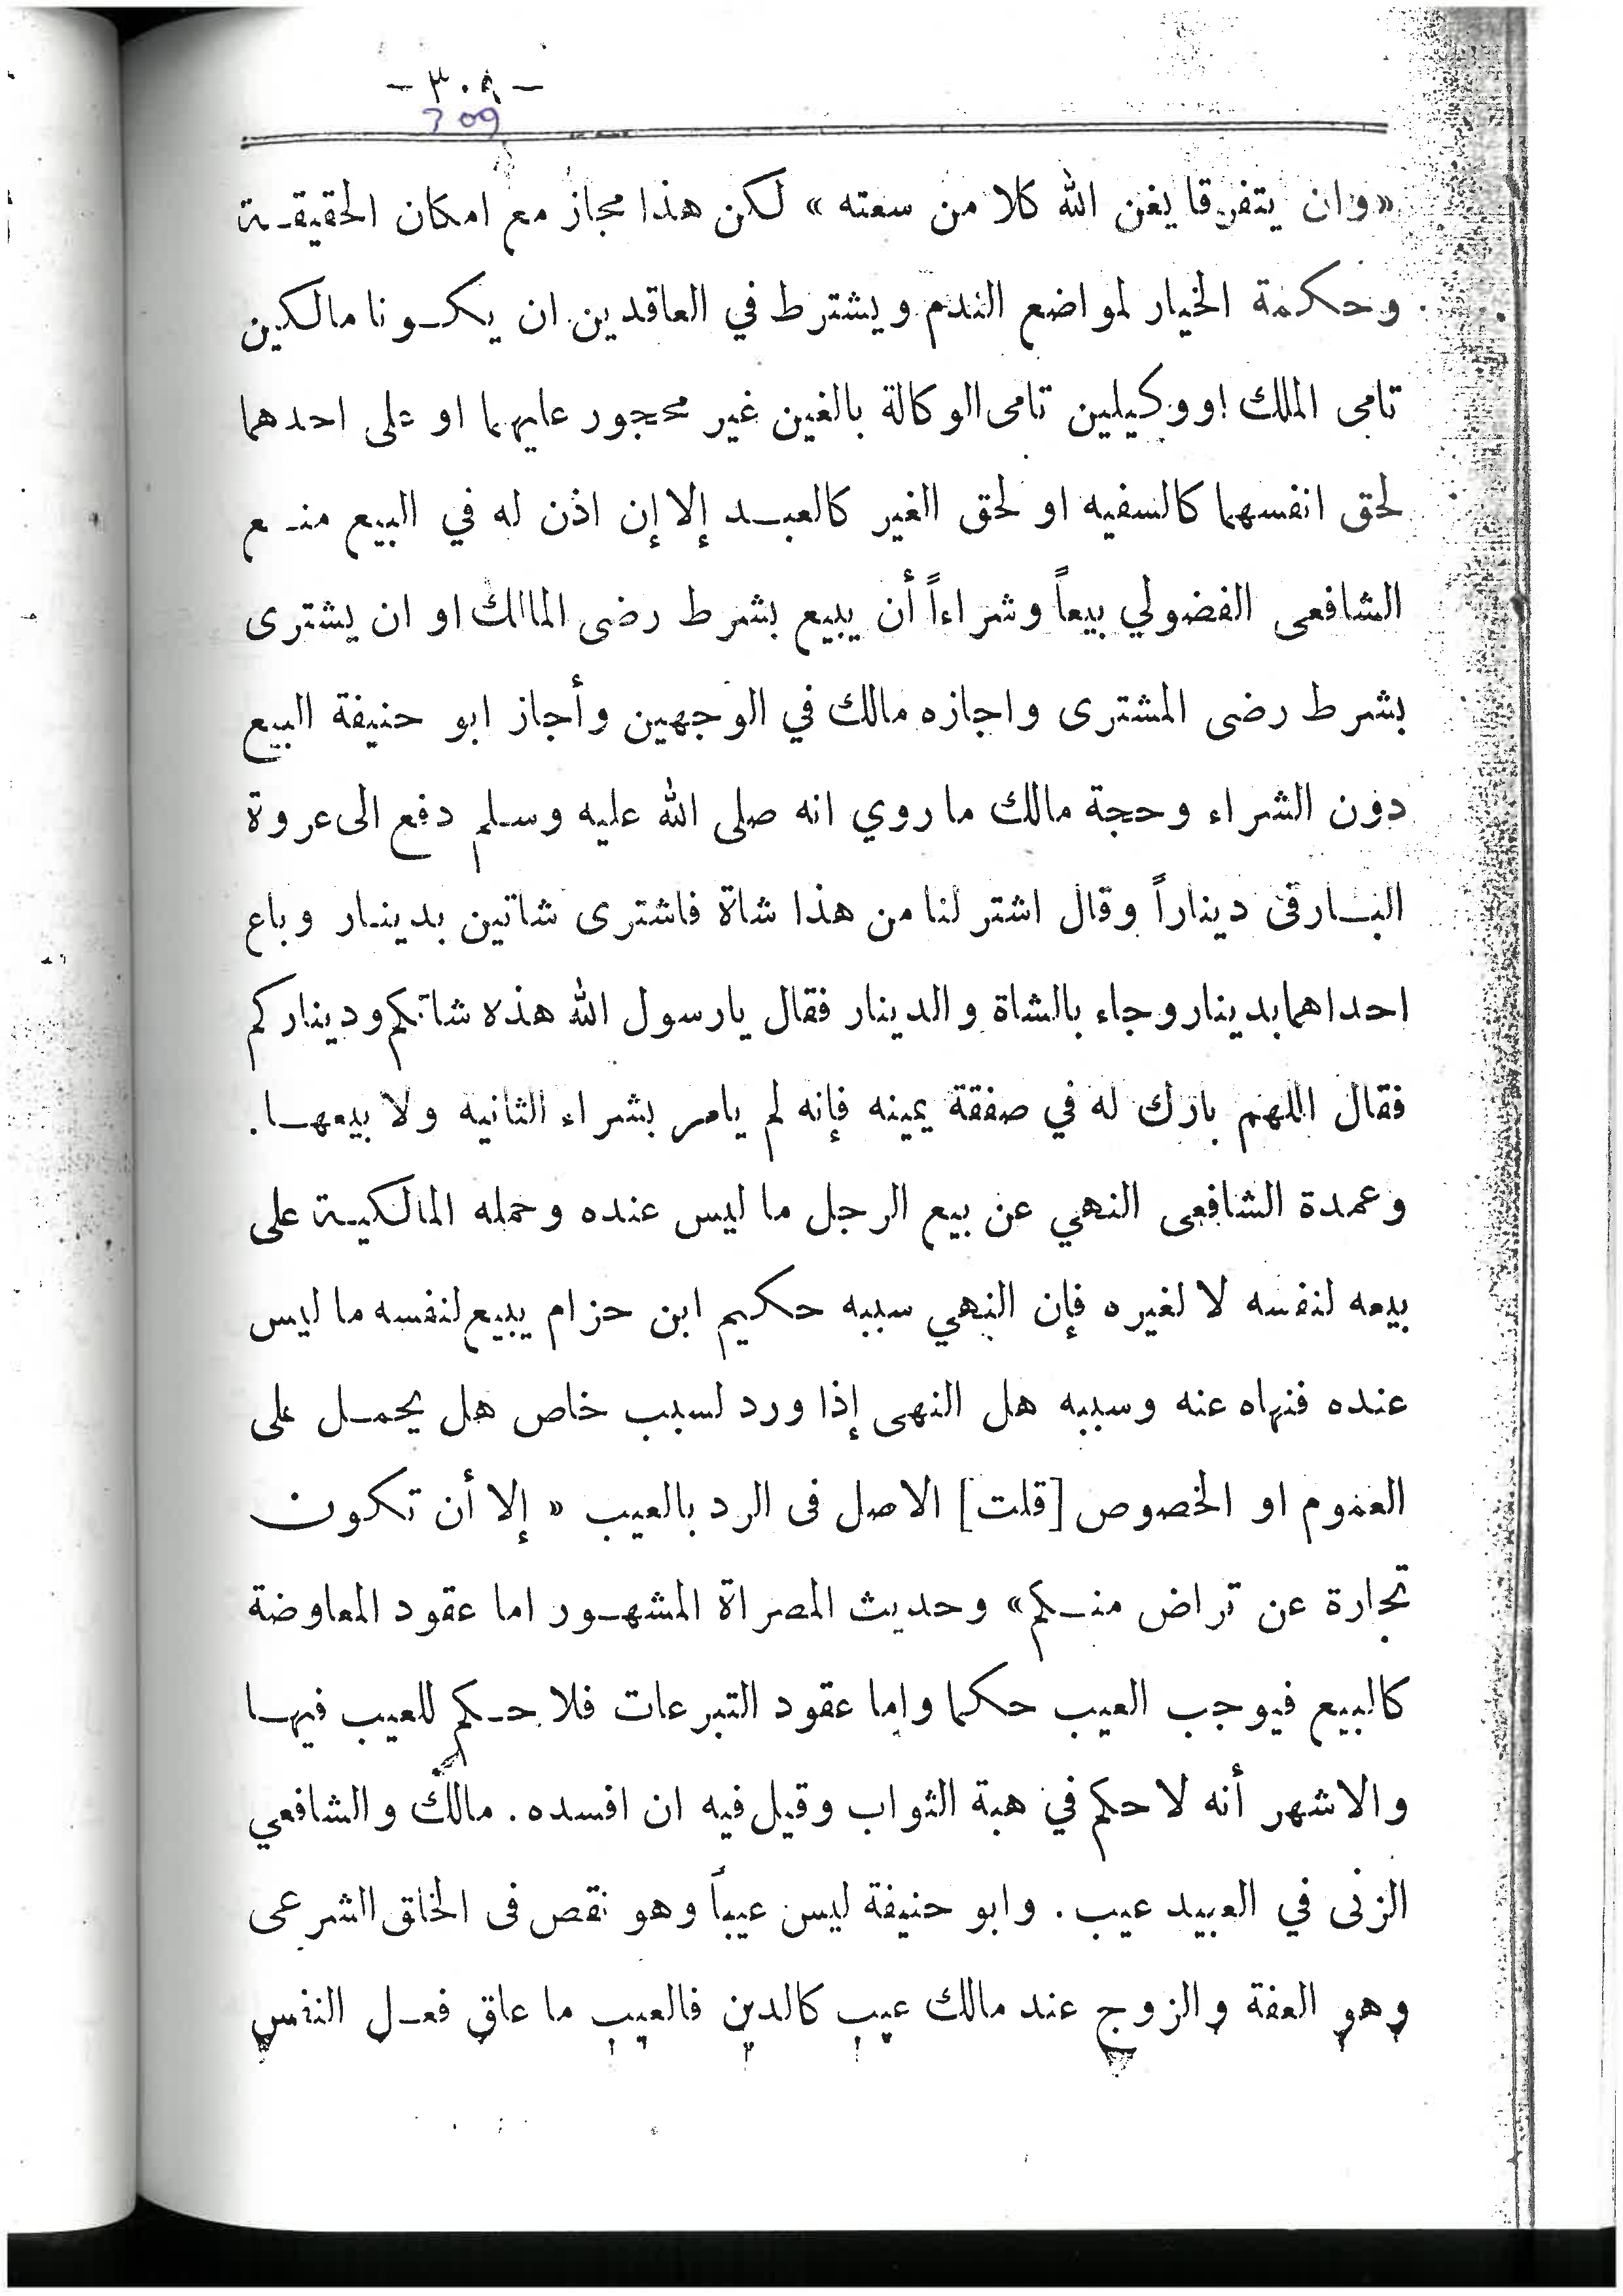 - ٣٠٨ -
309
«وان يتفرقا يغن الله كلا من سعته» لكن هذا مجاز مع امكان الحقيقـة
وحكمة الخيار لمواضع الندم ويشترط في العاقدين ان يكـونا مالكين
تامى الملك او وكيلين تامى الوكالة بالغين غير محجور عليهما او على احدهما
لحق انفسهما كالسفيه او لحق الغير كالعبـد إلا إن اذن له في البيع منـع
الشافعى الفضولي بيعاً وشراءاً أن يبيع بشرط رضى المالك او ان يشترى
بشرط رضى المشترى واجازه مالك في الوجهين وأجاز ابو حنيفة البيع
دون الشراء وحجة مالك ما روي انه صلى الله عليه وسلم دفع الى عروة
البـارقى ديناراً وقال اشتر لنا من هذا شاة فاشترى شاتين بدينـار وباع
احداهما بدينار وجاء بالشاة والدينار فقال يارسول الله هذه شاتكم ودينار كم
فقال اللهم بارك له في صفقة يمينه فإنه لم يامر بشراء الثانيه ولا بيعهـا.
وعمدة الشافعى النهي عن بيع الرجل ما ليس عنده وحمله المالكيـة على
بيعه لنفسه لا لغيره فإن النهي سببه حكيم ابن حزام يبيع لنفسه ما ليس
عنده فنهاه عنه وسببه هل النهى إذا ورد لسبب خاص هل يحمـل على
العموم او الخصوص [قلت] الاصل فى الرد بالعيب « إلا أن تكون
تجارة عن تراض منـكم» وحديث المصراة المشهـور اما عقود المعاوضة
كالبيع فيوجب العيب حكما واما عقود التبرعات فلا حـكم للعيب فيهـا
والاشهر أنه لا حكم في هبة الثواب وقيل فيه ان افسده. مالك والشافعي
الزنى في العبيد عيب. وابو حنيفة ليس عيباً وهو نقص فى الخلق الشرعى
وهو العفة والزوج عند مالك عيب كالدين فالعيب ما عاق فعـل النفس